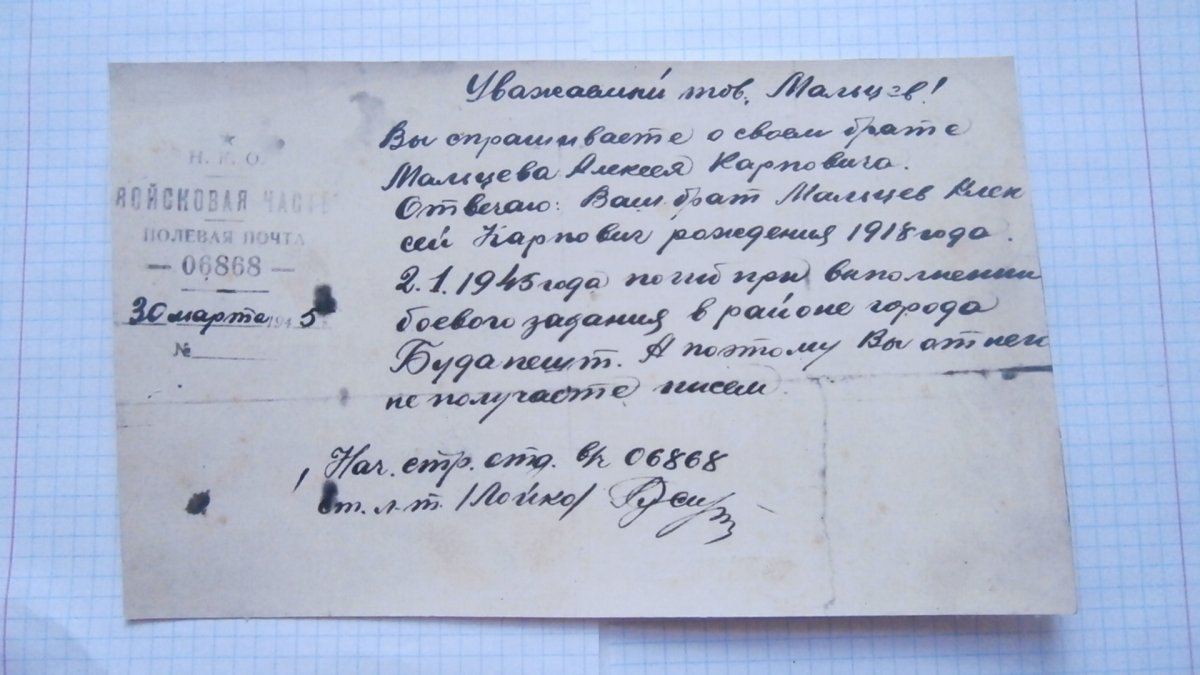 Уважаемый тов. Мальцев!
Вы спрашиваете о своем брате
Мальцева Алексея Карповича.
Отвечаю: Ваш брат Мальцев Алек
сей Карпович рождения 1918 года.
2.1.1945 года погиб при выполнении
боевого задания в районе города
Будапешт. А поэтому Вы от него
не получаете писем.
Н.К.О.
ВОЙСКОВАЯ ЧАСТЬ
ПОЛЕВАЯ ПОЧТА
— 06868 —
30 марта 1945 г.
№
Нач. стр. отд. в/ч 06868
ст. л-т. /Лойко/